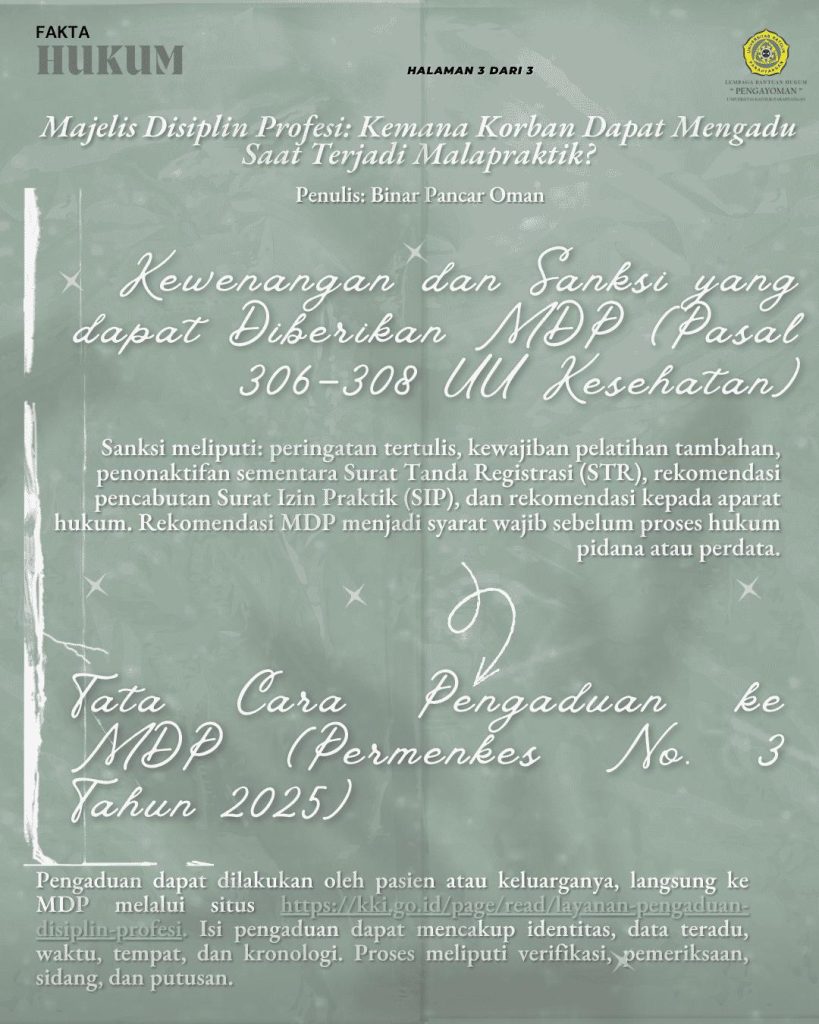 FAKTA
HUKUM
HALAMAN 3 DARI 3
LEMBAGA BANTUAN HUKUM
"PENGAYOMAN"
UNIVERSITAS KATOLIK PARAHYANGAN
Majelis Disiplin Profesi: Kemana Korban Dapat Mengadu
Saat Terjadi Malapraktik?
Penulis: Binar Pancar Oman
Kewenangan dan Sanksi yang
dapat Diberikan MDP (Pasal
306-308 UU Kesehatan)
Sanksi meliputi: peringatan tertulis, kewajiban pelatihan tambahan,
penonaktifan sementara Surat Tanda Registrasi (STR), rekomendasi
pencabutan Surat Izin Praktik (SIP), dan rekomendasi kepada aparat
hukum. Rekomendasi MDP menjadi syarat wajib sebelum proses hukum
pidana atau perdata.
Tata Cara Pengaduan ke
MDP (Permenkes No. 3
Tahun 2025)
Pengaduan dapat dilakukan oleh pasien atau keluarganya, langsung ke
MDP melalui situs https://kki.go.id/page/read/layanan-pengaduan-
disiplin-profesi. Isi pengaduan dapat mencakup identitas, data teradu,
waktu, tempat, dan kronologi. Proses meliputi verifikasi, pemeriksaan,
sidang, dan putusan.